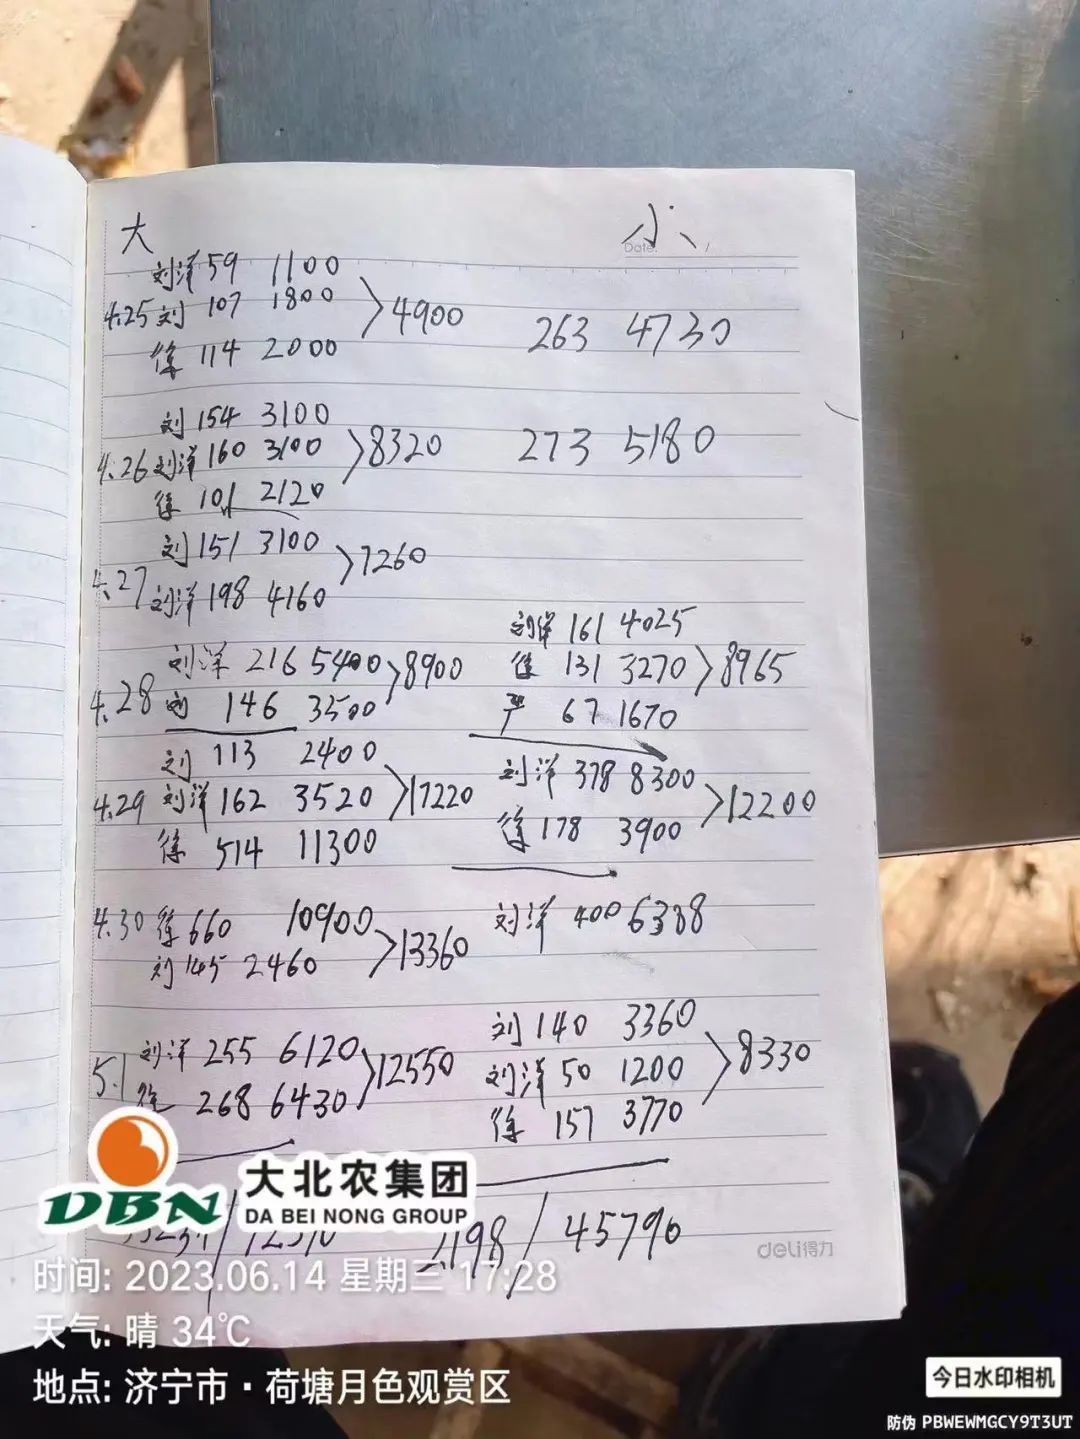 大 小
Date: /
刘洋 59 1100
4.25 刘 107 1800 >4900 263 4730
徐 114 2000
刘 154 3100
4.26 刘洋 160 3100 >8320 273 5180
徐 101 2120
刘 151 3100 >7260
4.27 刘洋 198 4160
刘洋 161 4025
刘洋 216 5400 >8900 徐 131 3270 >8965
4.28 刘 146 3500 严 67 1670
刘 113 2400 刘洋 378 8300 >12200
4.29 刘洋 162 3520 >17220
徐 514 11300 徐 178 3900
4.30 徐 660 10900 >13360 刘洋 400 6338
刘 145 2460
刘 140 3360
5.1 刘洋 255 6120 >12550 刘洋 50 1200 >8330
徐 268 6430 徐 157 3770
2198 / 45790
deli得力
DBN 大北农集团
DA BEI NONG GROUP
时间: 2023.06.14 星期三 17:28
天气: 晴 34℃
地点: 济宁市·荷塘月色观赏区
今日水印相机
防伪 PBWEWMGCY9T3UT